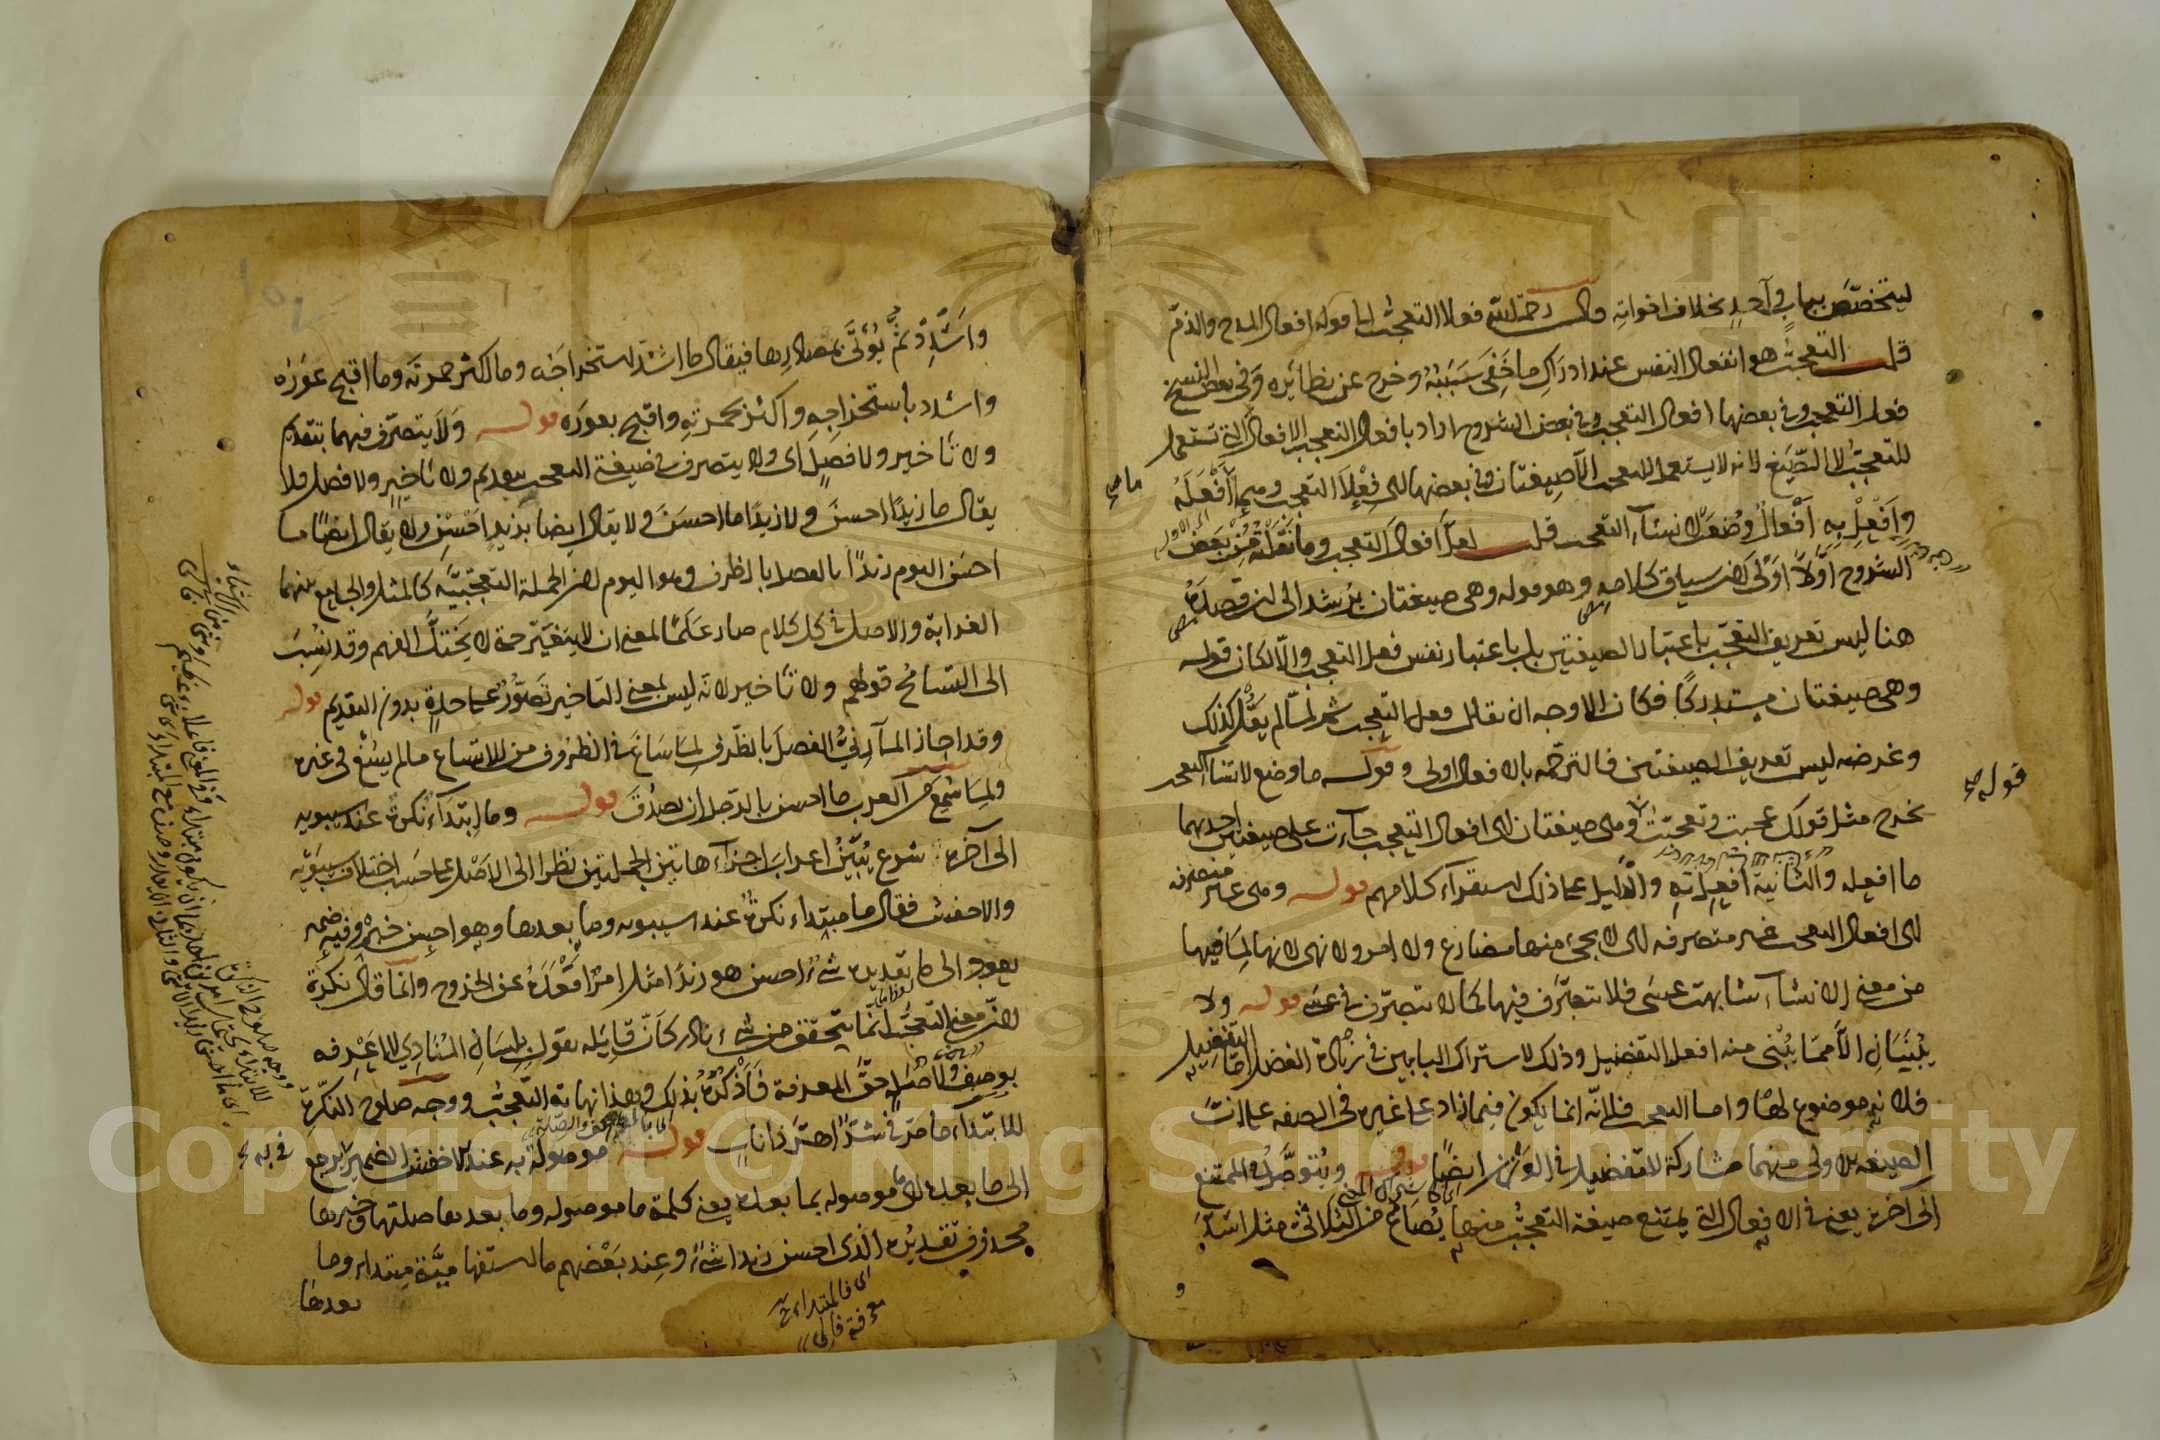 ليتخصّص بباب وآحد بخلاف اخواته قال رحمة الله فعلا التعجّب الى قوله افعال المدح والذمّ
قلت التعجّب هو انفعال النفس عند ادراك ما خفى سببه وخرج عن نظائره وفى بعض النسخ
فعل التعجب وفى بعضها افعال التعجب وفى بعض الشروح اراد بافعال التعجب الافعال التى تستعمل
للتعجّب لا الصّيغ لانه لا يستعمل للتعجب الّا صيغتان وفى بعضها اى فعلا التعجب وهما أفعله
وأفعل به أفعال وضعت لانشاء التعجب قلت لعلّ افعال التعجب وما نقلته من بعض
الشروح أوّلاً أولى لان سياق كلامه وهو قوله وهى صيغتان يرشد الى ان قصده
هنا ليس تعريف التعجّب باعتبار الصيغتين بل باعتبار نفس فعل التعجب والّا لكان قوله
وهى صيغتان مستدركا فكان الاوجه ان يقال فعل التعجب ثمّ لمّا لم يقل كذلك
وغرضه ليس تعريف الصيغتين فالترجمة بالافعال اولى وقوله ما وضع لانشاء التعجب
يخرج مثل قولك عجبت وتعجّبت وهى صيغتان اى افعال التعجب جآءت على صيغتين احديهما
ما افعله والثانية افعل به والدليل على ذلك استقرآء كلامهم قوله وهى غير متصرفة
اى افعال التعجب غير متصرفه اى لا يجئ منها مضارع ولا امر ولا نهى لانها لما فيها
من معنى الانشاء شابهت عسى فلا يتصرّف فيها كما لا يتصرّف فى عسى قوله ولا
يبنيان الّا ممّا يُبنى منه افعل التفضيل وذلك لاشتراك البابين فى زيادة الفضل امّا التفضيل
فلانه موضوع لها واما التعجب فلانّه انما يكون فيما زاد على غيره فى الصفه على انّ
الصيغه الاولى منهما مشاركة للتفضيل فى الوزن ايضًا قوله ويُتوصّل فى الممتنع
الى آخره يعنى فى الافعال التى يمتنع صيغة التعجّب منها يُصاغ من الثلاثىّ مثل اشدّ
ما هى
قوله
واشدد ثمّ يؤتى بمصادرها فيقال ما اشدّ استخراجَه وما اكثر حمرته وما اقبح عَوَرَه
واشدد باستخراجه واكثر بحمرته واقبح بعوره قوله ولا يتصرّف فيهما بتقديم
ولا تأخير ولا فصل اى ولا يتصرف فى صيغة التعجب بتقديم ولا تأخير ولا فصل فلا
يقال ما زيدًا احسن ولا زيدًا ما احسن ولا يقال ايضا بزيد احسن ولا يقال ايضًا ما
احسن اليوم زيدًا بالفصل بالظرف وهو اليوم لان الجملة التعجّبيّة كالمثل والجامع بينهما
الغرابة والاصل فى كل كلام صار علمًا لمعنى ان لا يتغيّر حتى لا يختلّ الفهم وقد نسب
الى التسامح قولهم ولا تأخير لانه ليس لمعنى التاخير تصوّر على حدة بدون التقديم قوله
وقد اجاز المآزنىّ الفصل بالظرف لما ساغ فى الظروف من الاتساع ما لم يسغ فى غيره
ولما سُمع من العرب ما احسن بالرّجل ان يصدُق قوله وما ابتدآء نكرة عند سيبويه
الى آخره شرع يبيّن اعراب اجزآء هاتين الجملتين نظرا الى الاصل على حسب اختلاف سيبويه
والاخفش فقال ما مبتداء نكرة عند سيبويه وما بعدها وهو احسن خبره وفيه ضمير
يعود الى ما تقديره شئ احسن هو زيدًا مثل امرٌ أقعده عن الخروج وانّما قال نكرة
لانّ معنى التعجّب انما يتحقق من شئ نادر كانّ قايله يقول بلسان المنادى لا اعرفه
بوصف ولاصل حقّ المعرفة فأذكره بذلك وهذا نهاية التعجّب ووجه صلوح النكرة
للابتداء ما مرّ فى شرّ اهرّ ذا ناب قوله موصولة به عند الاخفش الضمير يرجع
الى ما بعد اى ما موصوله بما بعده يعنى كلمة ما موصوله وما بعدها صلتها وخبرها
محذوف تقديره الذى احسن زيدا شئ وعند بعضهم ما استفهامية مبتداء وما
بعدها
اى فالمبتدا